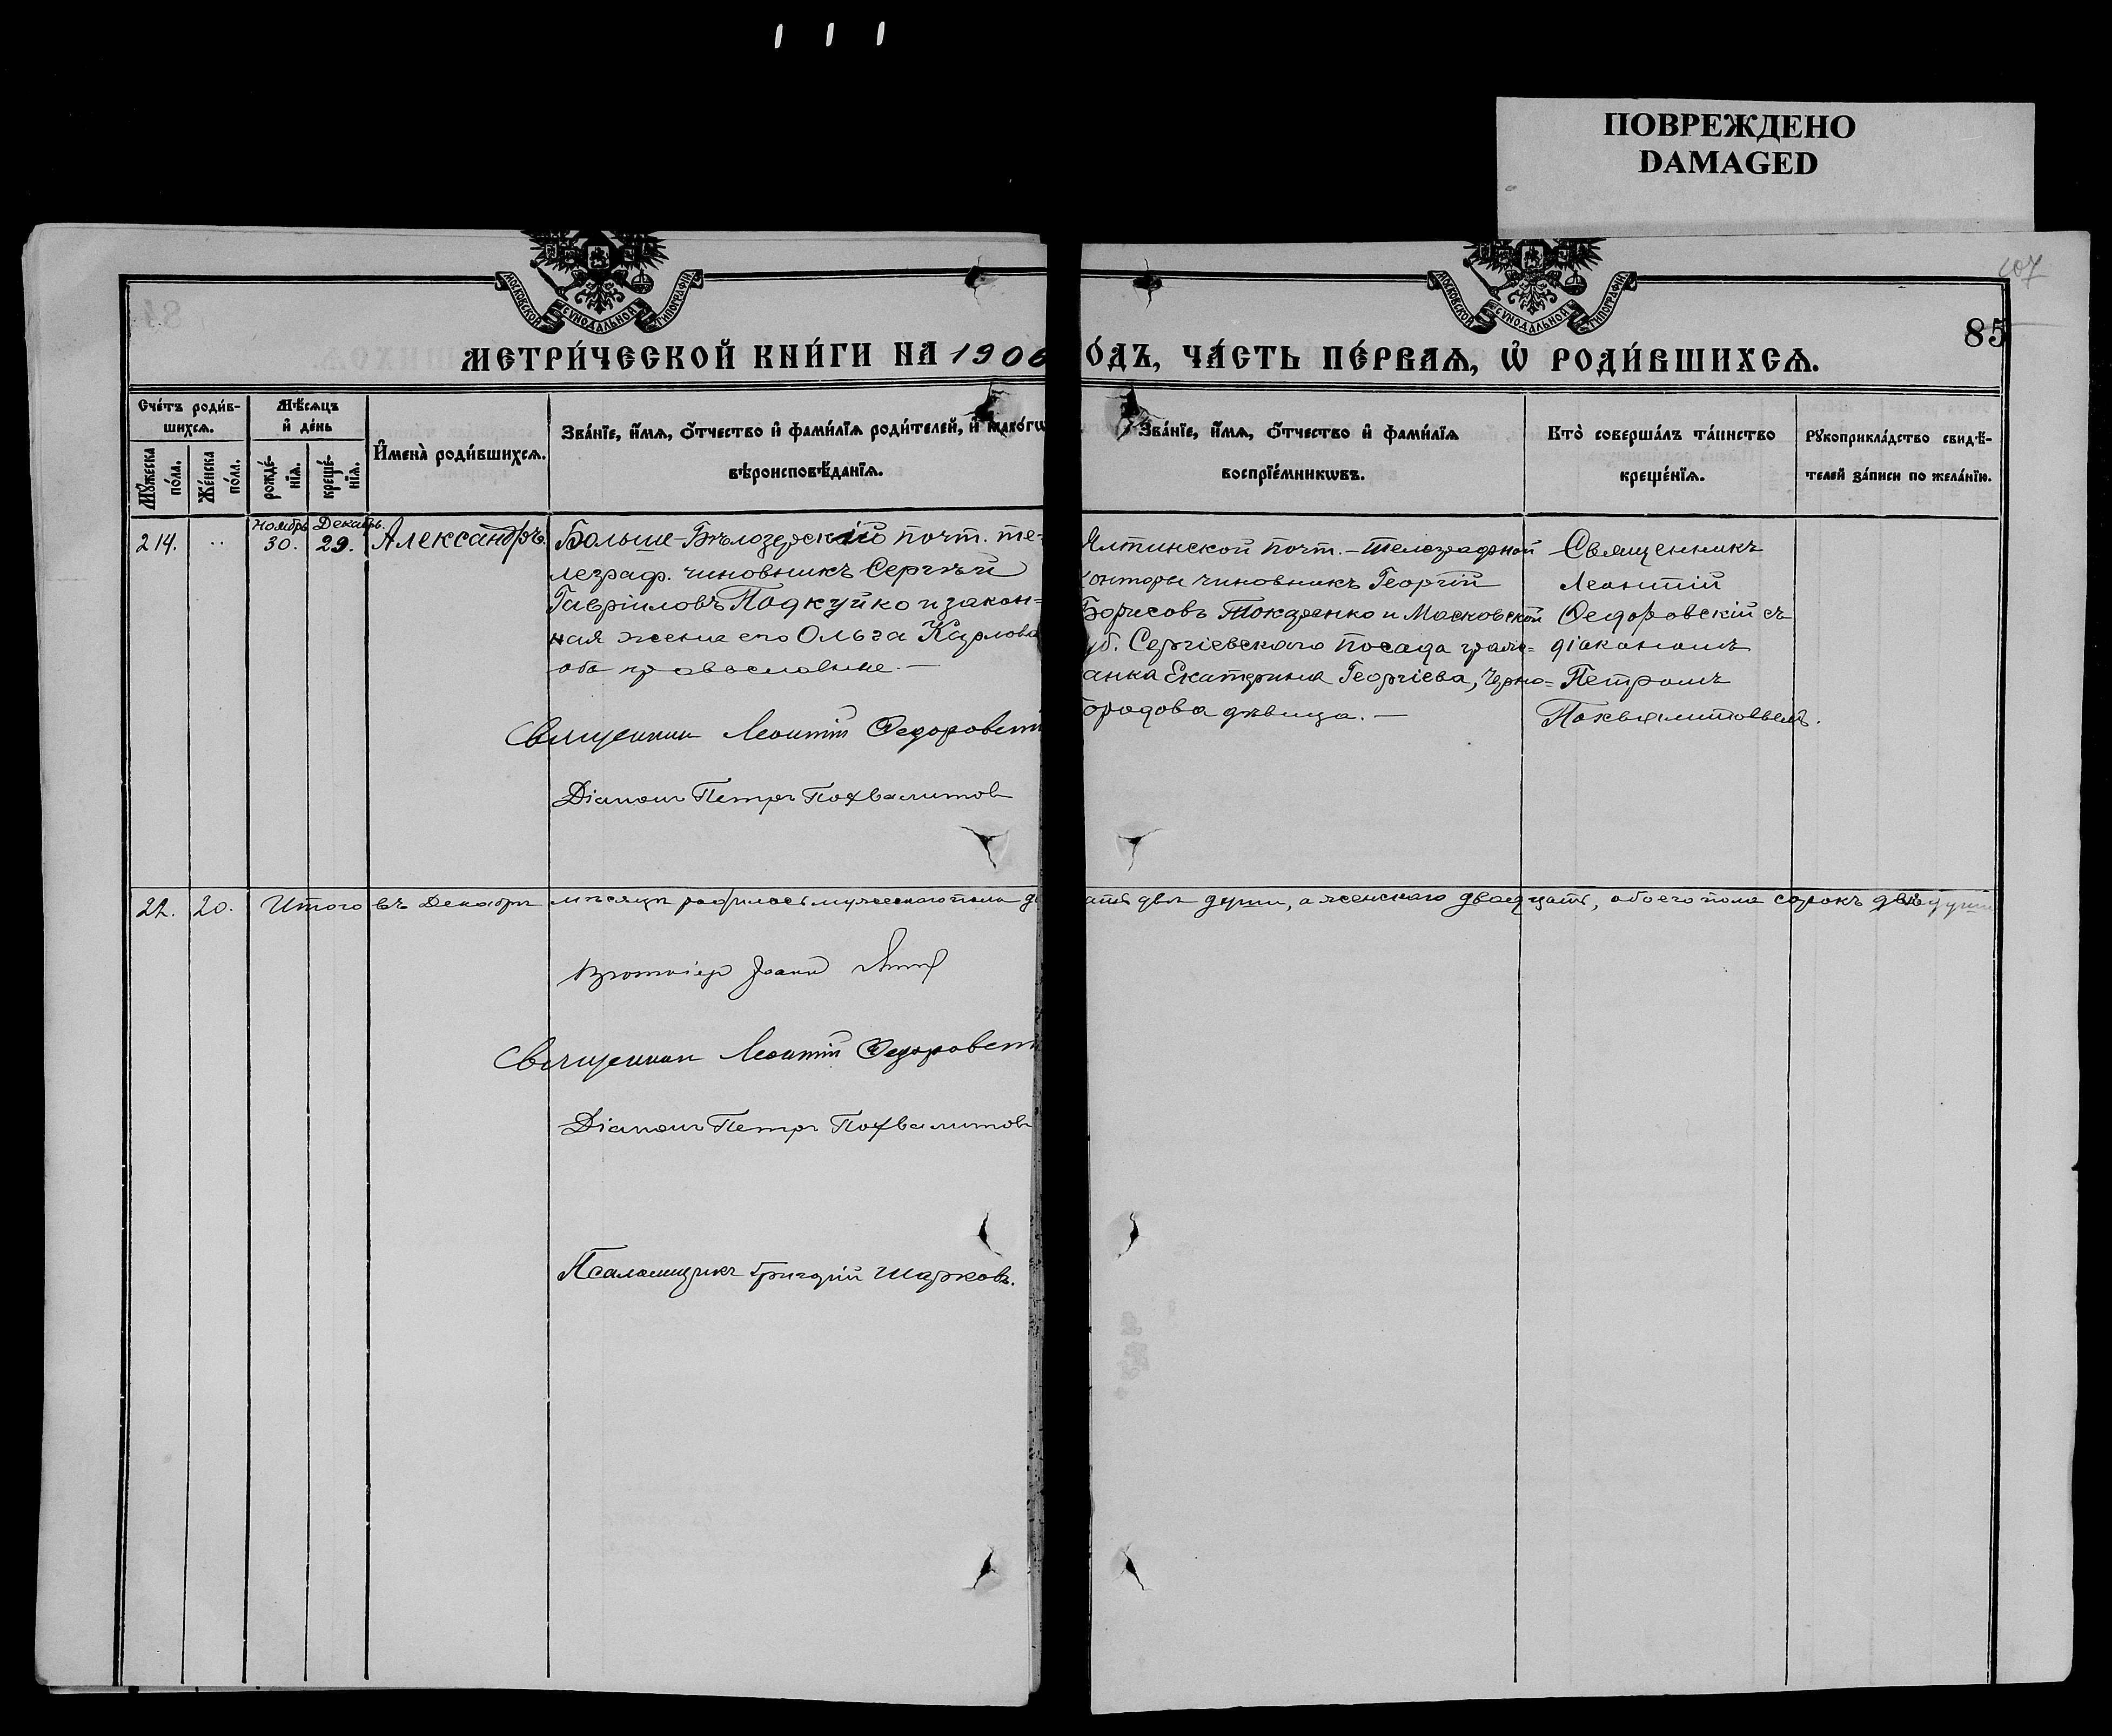 ПОВРЕЖДЕНО
DAMAGED
107
85
МОСКОВСКОЙ СѴНОДАЛЬНОЙ ТИПОГРАФІИ
МОСКОВСКОЙ СѴНОДАЛЬНОЙ ТИПОГРАФІИ
МЕТРИ́ЧЕСКОЙ КНИ́ГИ НА 1906
О́ДЪ, ЧА́СТЬ ПЕ́РВАѦ, Ѡ҆ РОДИ́ВШИХСѦ.
Сче́тъ роди́в-
шихсѧ.
Мѣ́сѧцъ
и҆ де́нь
Мꙋ́жеска по́ла.
Же́нска по́ла.
рожде́-
нїѧ.
креще́-
нїѧ.
И҆мена̀ роди́вшихсѧ.
Зва́нїе, и҆́мѧ, ѻ҆́тчество и҆ фами́лїѧ роди́телей, и҆ како́гѡ
вѣроисповѣ́данїѧ.
Зва́нїе, и҆́мѧ, ѻ҆́тчество и҆ фами́лїѧ
воспрїе́мникѡвъ.
Кто̀ соверша́лъ та́инство
креще́нїѧ.
Рꙋкоприкла́дство свидѣ́-
телей за́писи по жела́нїю.
214.
Ноябрь
30.
Декабрь.
29.
Александръ.
Больше-Бѣлозерскій почт. те-
леграф. чиновникъ Сергѣй
Гавріиловъ Подкуйко и закон-
ная жена его Ольга Карлова
оба православные.—
Священник Леонтій Федоровскі
Діаконъ Петръ Похвалитов
Ялтинской почт.-телеграфной
конторы чиновникъ Георгій
Борисовъ Токаренко и Московской
уб. Сергіевскаго посада граж-
анка Екатерина Георгіева, Черно-
ородова дѣвица.—
Священникъ
Леонтій
Федоровскій съ
діакономъ
Петромъ
Похвалитовымъ.
22. 20. Итого въ Декабрѣ мѣсяцѣ родилось мужескаго пола дв
ать двѣ души, а женскаго двадцать, обоего пола сорокъ двѣ души
Протоіер Іоанн
Священник Леонтій Федоровскі
Діаконъ Петръ Похвалитов
Псаломщикъ Григорій Шарковъ.